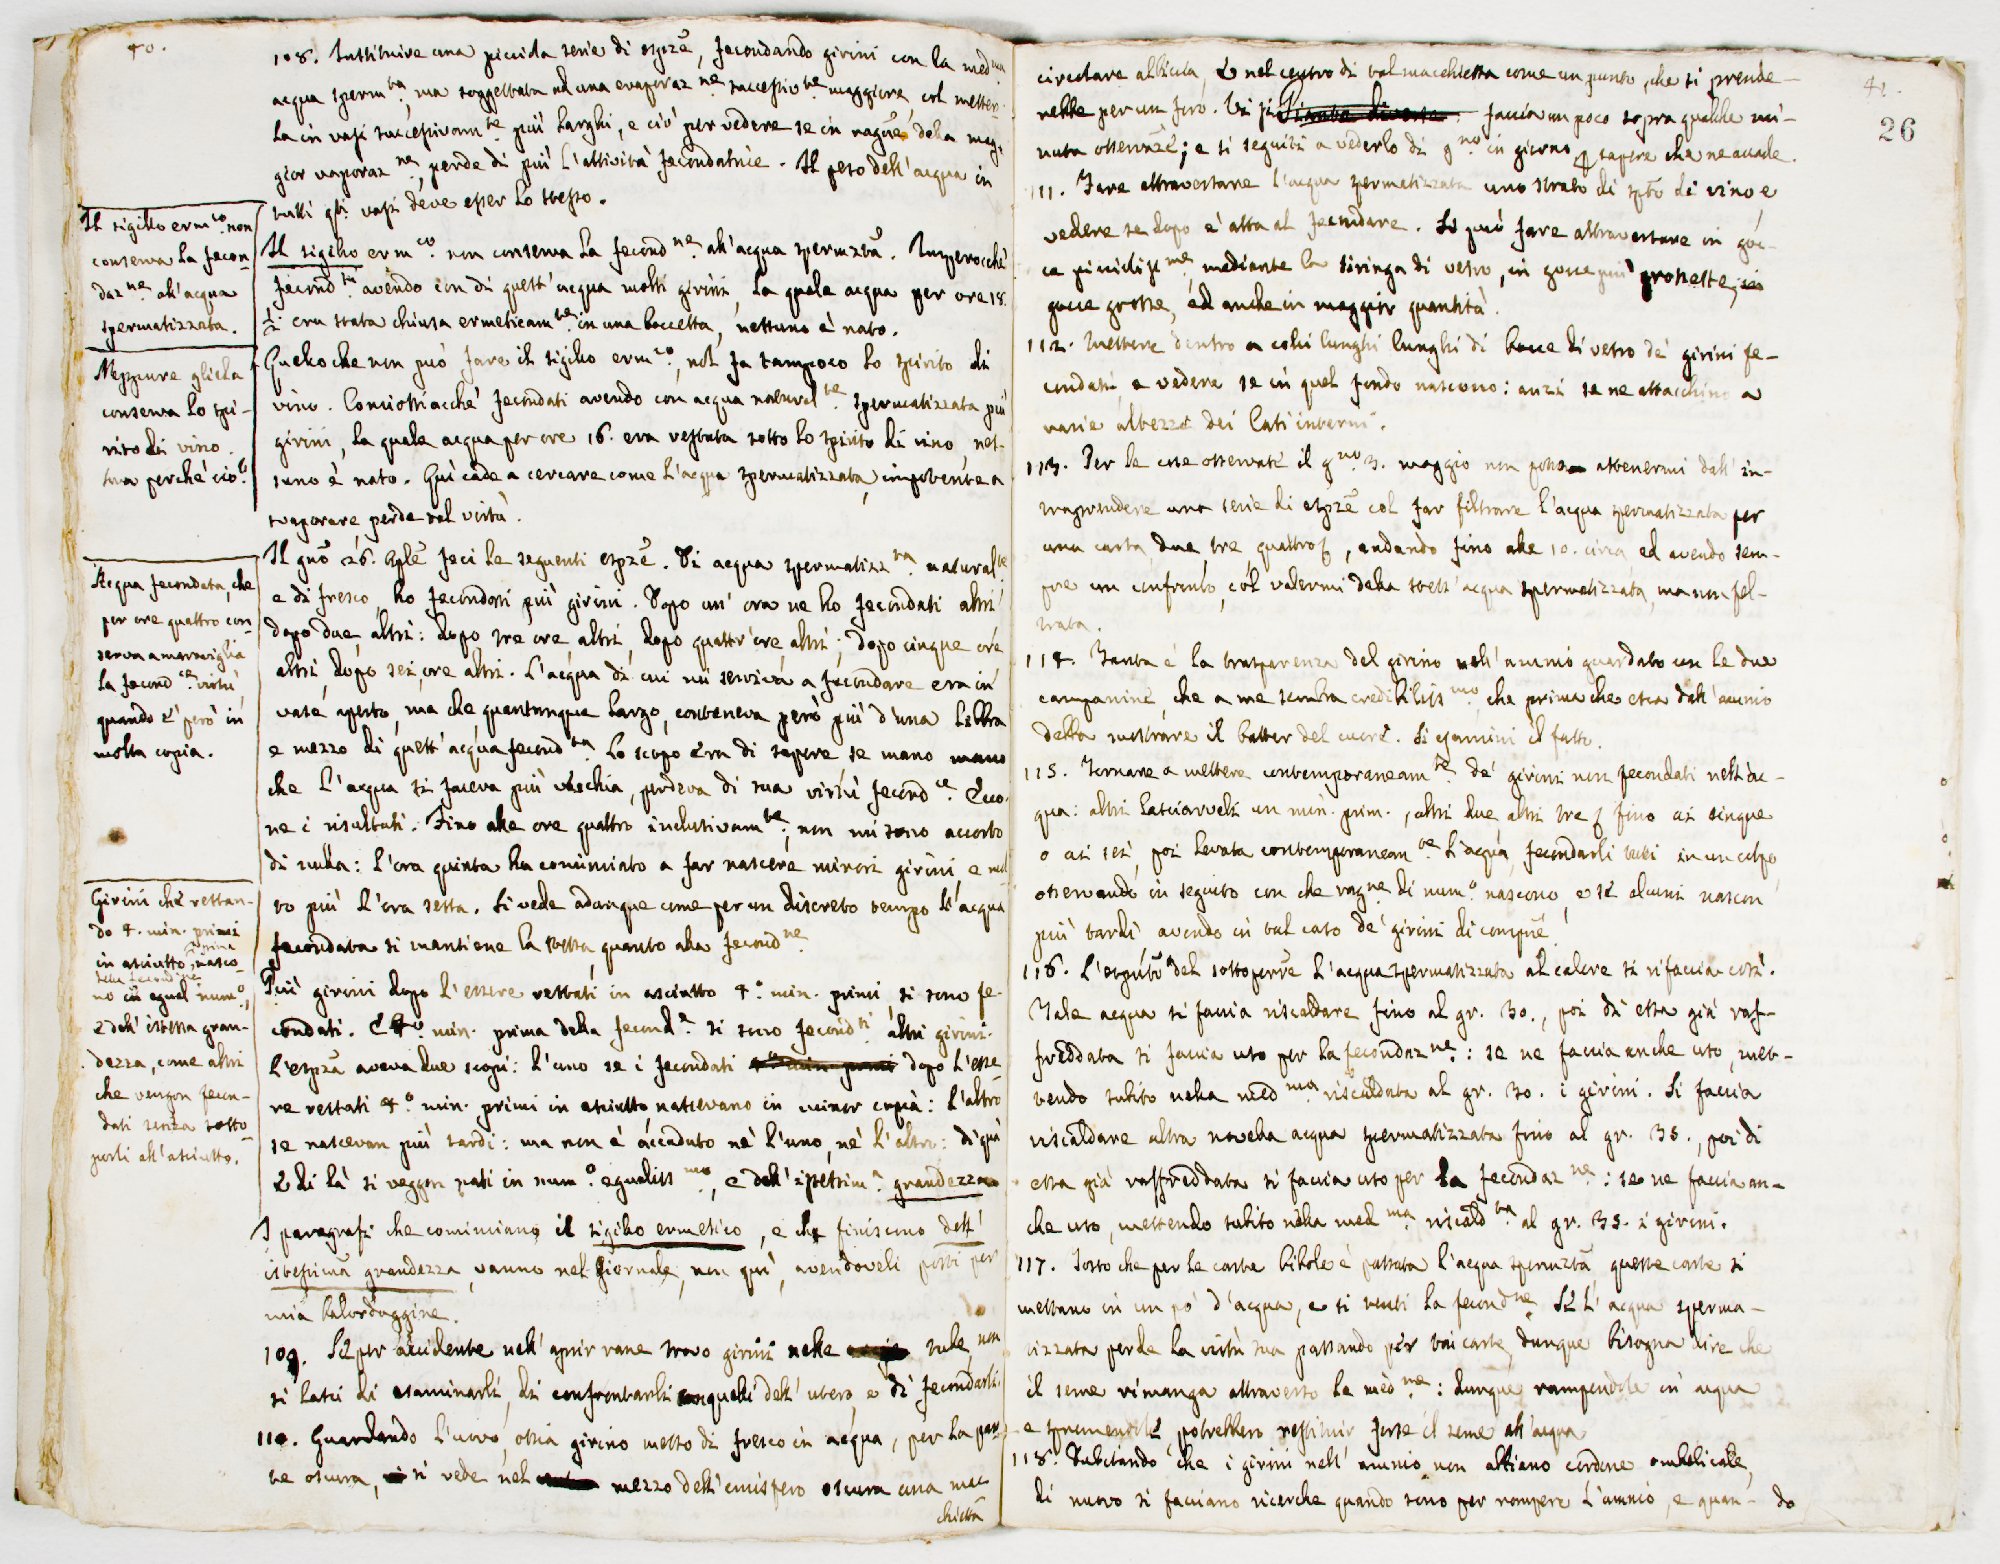 40.
108. Instituire una picciola serie di espze, fecondando girini con la medma
acqua spermta, ma soggettata ad una evaporazne successivte maggiore, col metter-
la in vasi successivamte più larghi, e ciò per vedere se in ragne della mag-
gior vaporazne, perde di più l'attività fecondatrice. Il peso dell'acqua in
tutti gli vasi deve esser lo stesso.
Il sigillo ermco. non
conserva la fecon-
dazne. all'acqua
spermatizzata.
Il sigillo ermco. non conserva la fecondne all'acqua spermzta. Imperocchè
fecondti avendo con di quest'acqua molti girini, la quale acqua per ore 18.
½ era stata chiusa ermeticamte. in una boccetta, nessuno è nato.
Neppure gliela
conserva lo spi-
rito di vino.
sua perchè ciò?
Quello che non può fare il sigillo ermco, nol fa tampoco lo spirito di
vino. Conciossiacchè fecondati avendo con acqua naturalte. spermatizzata più
girini, la quale acqua per ore 16. era restata sotto lo spirito di vino, nes-
suno è nato. Quì cade a cercare come l'acqua spermatizzata, impotente a
svaporare perde tal virtù.
Acqua fecondata, che
per ore quattro con-
serva a meraviglia
la fecondce. virtù,
quando è però in
molta copia.
Il gno 26. Aple feci le seguenti espze. Di acqua spermatizzta. naturalte
e di fresco, ho fecondati più girini. Dopo un'ora ne ho fecondati altri
dopo due, altri: dopo tre ore, altri, dopo quattr'ore altri; dopo cinque ore
altri, dopo sei, ore altri. L'acqua di cui mi serviva a fecondare era in
vase aperto, ma che quantunque largo, conteneva però più d'una libbra
e mezzo di quest'acqua fecondta. Lo scopo era di sapere se mano mano
che l'acqua si faceva più vecchia, perdeva di sua virtù fecondce. Ecco-
ne i risultati. Fino alle ore quattro inclusivamte, non mi sono accorto
di nulla: l'ora quinta ha cominciato a far nascere minori girini e mol
to più l'ora sesta. Si vede adunque come per un discreto tempo l'acqua
fecondata si mantiene la stessa quanto alla fecondne.
Girini che restan-
do 4. min. primi
in asciutto, prima
della fecondne nasco-
no in egual numo,
e dell'istessa gran-
dezza, come altri
che vengon fecon-
dati senza sotto-
porli all'asciutto.
Più girini dopo l'essere restati in asciutto 4.o min. primi, si sono fe-
condati. E 4o min. prima della feconda. si sono fecondti altri girini.
L'espza aveva due scopi: l'uno se i fecondati dopo l'esse-
re restati 4.o min. primi in asciutto nascevano in minor copia: l'altro
se nascevan più tardi: ma non è accaduto nè l'uno, nè l'altro: di quà
e di là si veggon nati in numo. egualissmo, e dell'istessima. grandezza
I paragrafi che cominciano il sigillo ermetico, e che finiscono dell'
istessima grandezza, vanno nel Giornale, non quì, avendoveli posti per
mia balordaggine.
109. Se per accidente nell'aprir rane trovo girini nelle tube, non
si lasci di esaminarli, di confrontarli con quelli dell'utero, e di fecondarli.
110. Guardando l'uovo, ossia girino messo di fresco in acqua, per la par-
te oscura, si vede nel mezzo dell'emisfero oscura una mac
chietta
41.
26
circolare albiccia, e nel centro di tal macchietta come un punto, che si prende-
rebbe per un foro. Vi si faccia un poco sopra qualche mi-
nuta osservaze; e si seguiti a vederlo di gno in giorno p sapere che ne accade.
111. Fare attraversare l'acqua spermatizzata uno strato di spto di vino e
vedere se dopo è atta al fecondare. Si può fare attraversare in goc-
ce picciolissme, mediante la siringa di vetro, in gocce più grossette, in
gocce grosse, ed anche in maggior quantità.
112. Mettere dentro a colli lunghi lunghi di bocce di vetro de' girini fe-
condati, e vedere se in quel fondo nascono: anzi se ne attacchino a
varie altezze dei lati interni.
113. Per le cose osservate il gno. 3. maggio non posso astenermi dall'in-
traprendere una serie di espze col far filtrare l'acqua spermatizzata per
una carta, due, tre quattro &, andando fino alle 10. circa ed avendo sem-
pre un confronto, col valermi della stess'acqua spermatizzata, ma non fel-
trata.
114. Tanta è la trasparenza del girino nell'amnio guardato con le due
campanine, che a me sembra credibilissmo, che prima che esca dall'amnio
debba mostrare il batter del cuore. Si esamini il fatto.
115. Tornare a mettere contemporaneamte. de' girini non fecondati nell'ac-
qua: altri lasciarveli un min. prim., altri due altri tre & fino ai cinque
o ai sei, poi levata contemporaneamte. l'acqua, fecondarli tutti in un colpo
osservando in seguito con che ragne. di numo. nascono, e se alcuni nascon
più tardi, avendo in tal caso de' girini di compne.
116. L'espto del sottoporre l'acqua spermatizzata al calore si rifaccia così.
Tale acqua si faccia riscaldare fino al gr. 30., poi di essa già raf-
freddata si faccia uso per la fecondazne.: se ne faccia anche uso, met-
tendo subito nella medma. riscaldata al gr. 30. i girini. Si faccia
riscaldare altra novella acqua spermatizzata fino al gr. 35., poi di
essa già raffreddata si faccia uso per la fecondazne.: se ne faccia an-
che uso, mettendo subito nella medma riscaldta. al gr. 35. i girini.
117. Tosto che per le carte bibole è passata l'acqua spermzta queste carte si
mettano in un pò d'acqua, e si tenti la fecondne. Se l'acqua sperma-
tizzata perde la virtù sua passando per tai carte, dunque bisogna dire che
il seme rimanga attraverso le medme.: dunque rompendole in acqua
e spremendole potrebbero restituir forse il seme all'acqua.
118. Dubitando che i girini nell'amnio non abbiano cordone ombelicale,
di nuovo si facciano ricerche quando sono per rompere l'amnio, e quan-
do